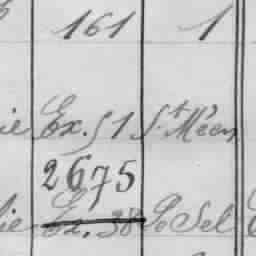 161 1
ie Ex. §1 St Méen
2675
lie Ex. 38 Po Sel